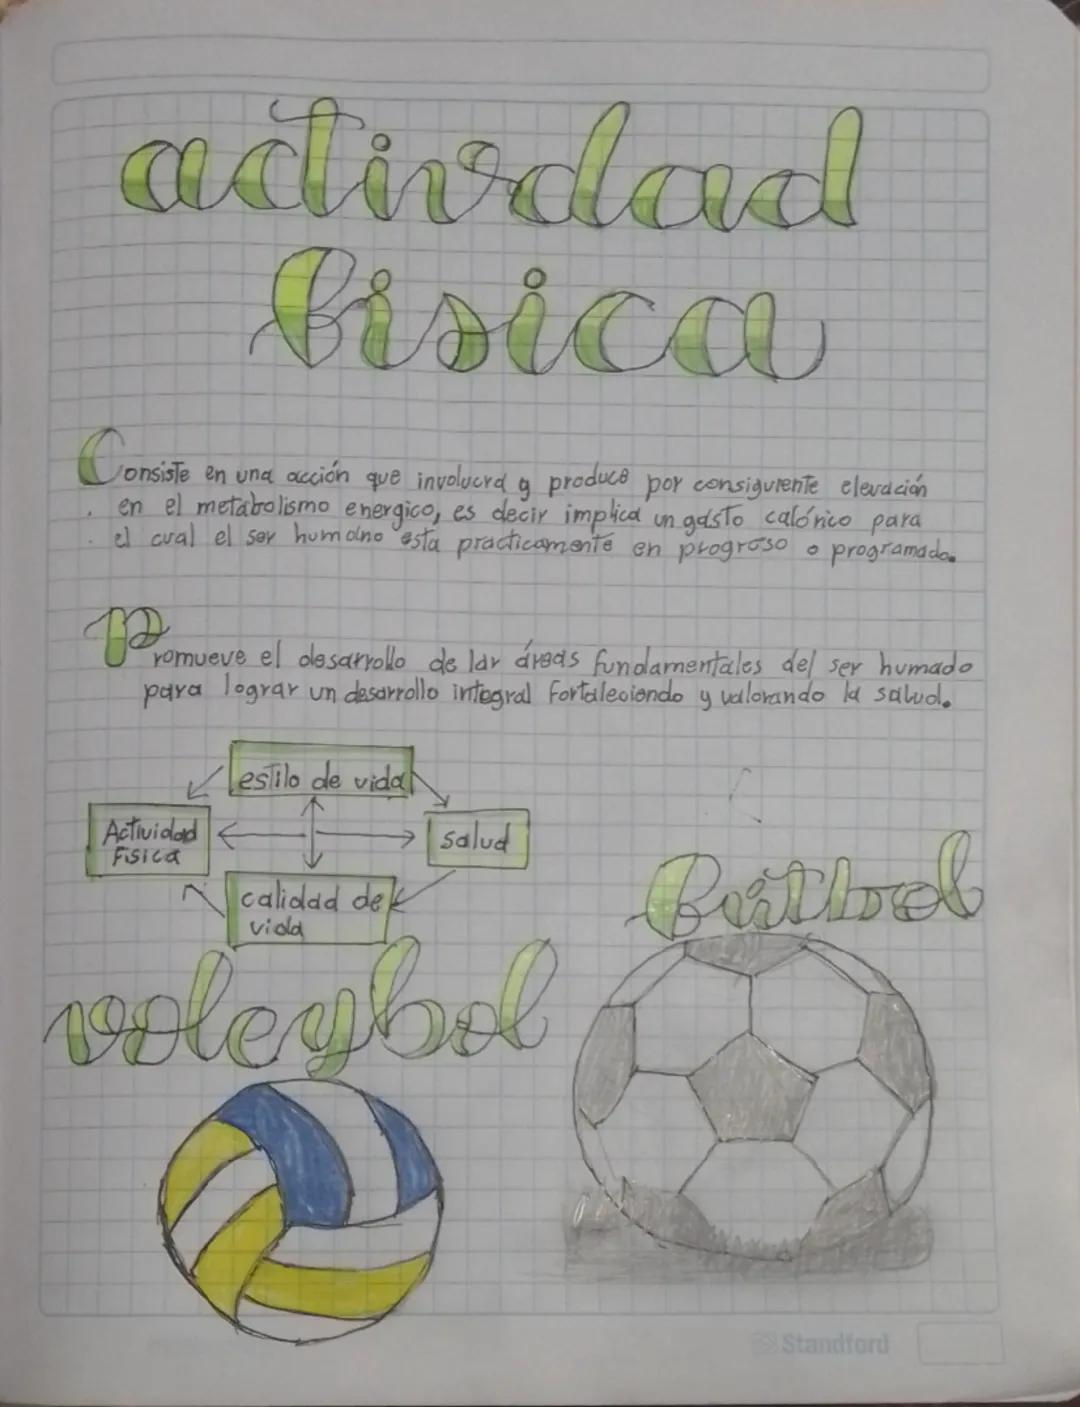 activdad
fisica
Consiste en una acción que involucra y produce por consigurente elevación
en el metabolismo energico, es decir implica un gasto calórico para
el cual el ser humano esta practicamente en progroso o programado.
Promueve el desarrollo de lar áreas fundamentales del ser humado
para lograr un desarrollo integral fortaleciendo y valorando la salud.
estilo de vida
Actividad
Fisica
salud
calidad de
vida
futbol
voleybol
Standford